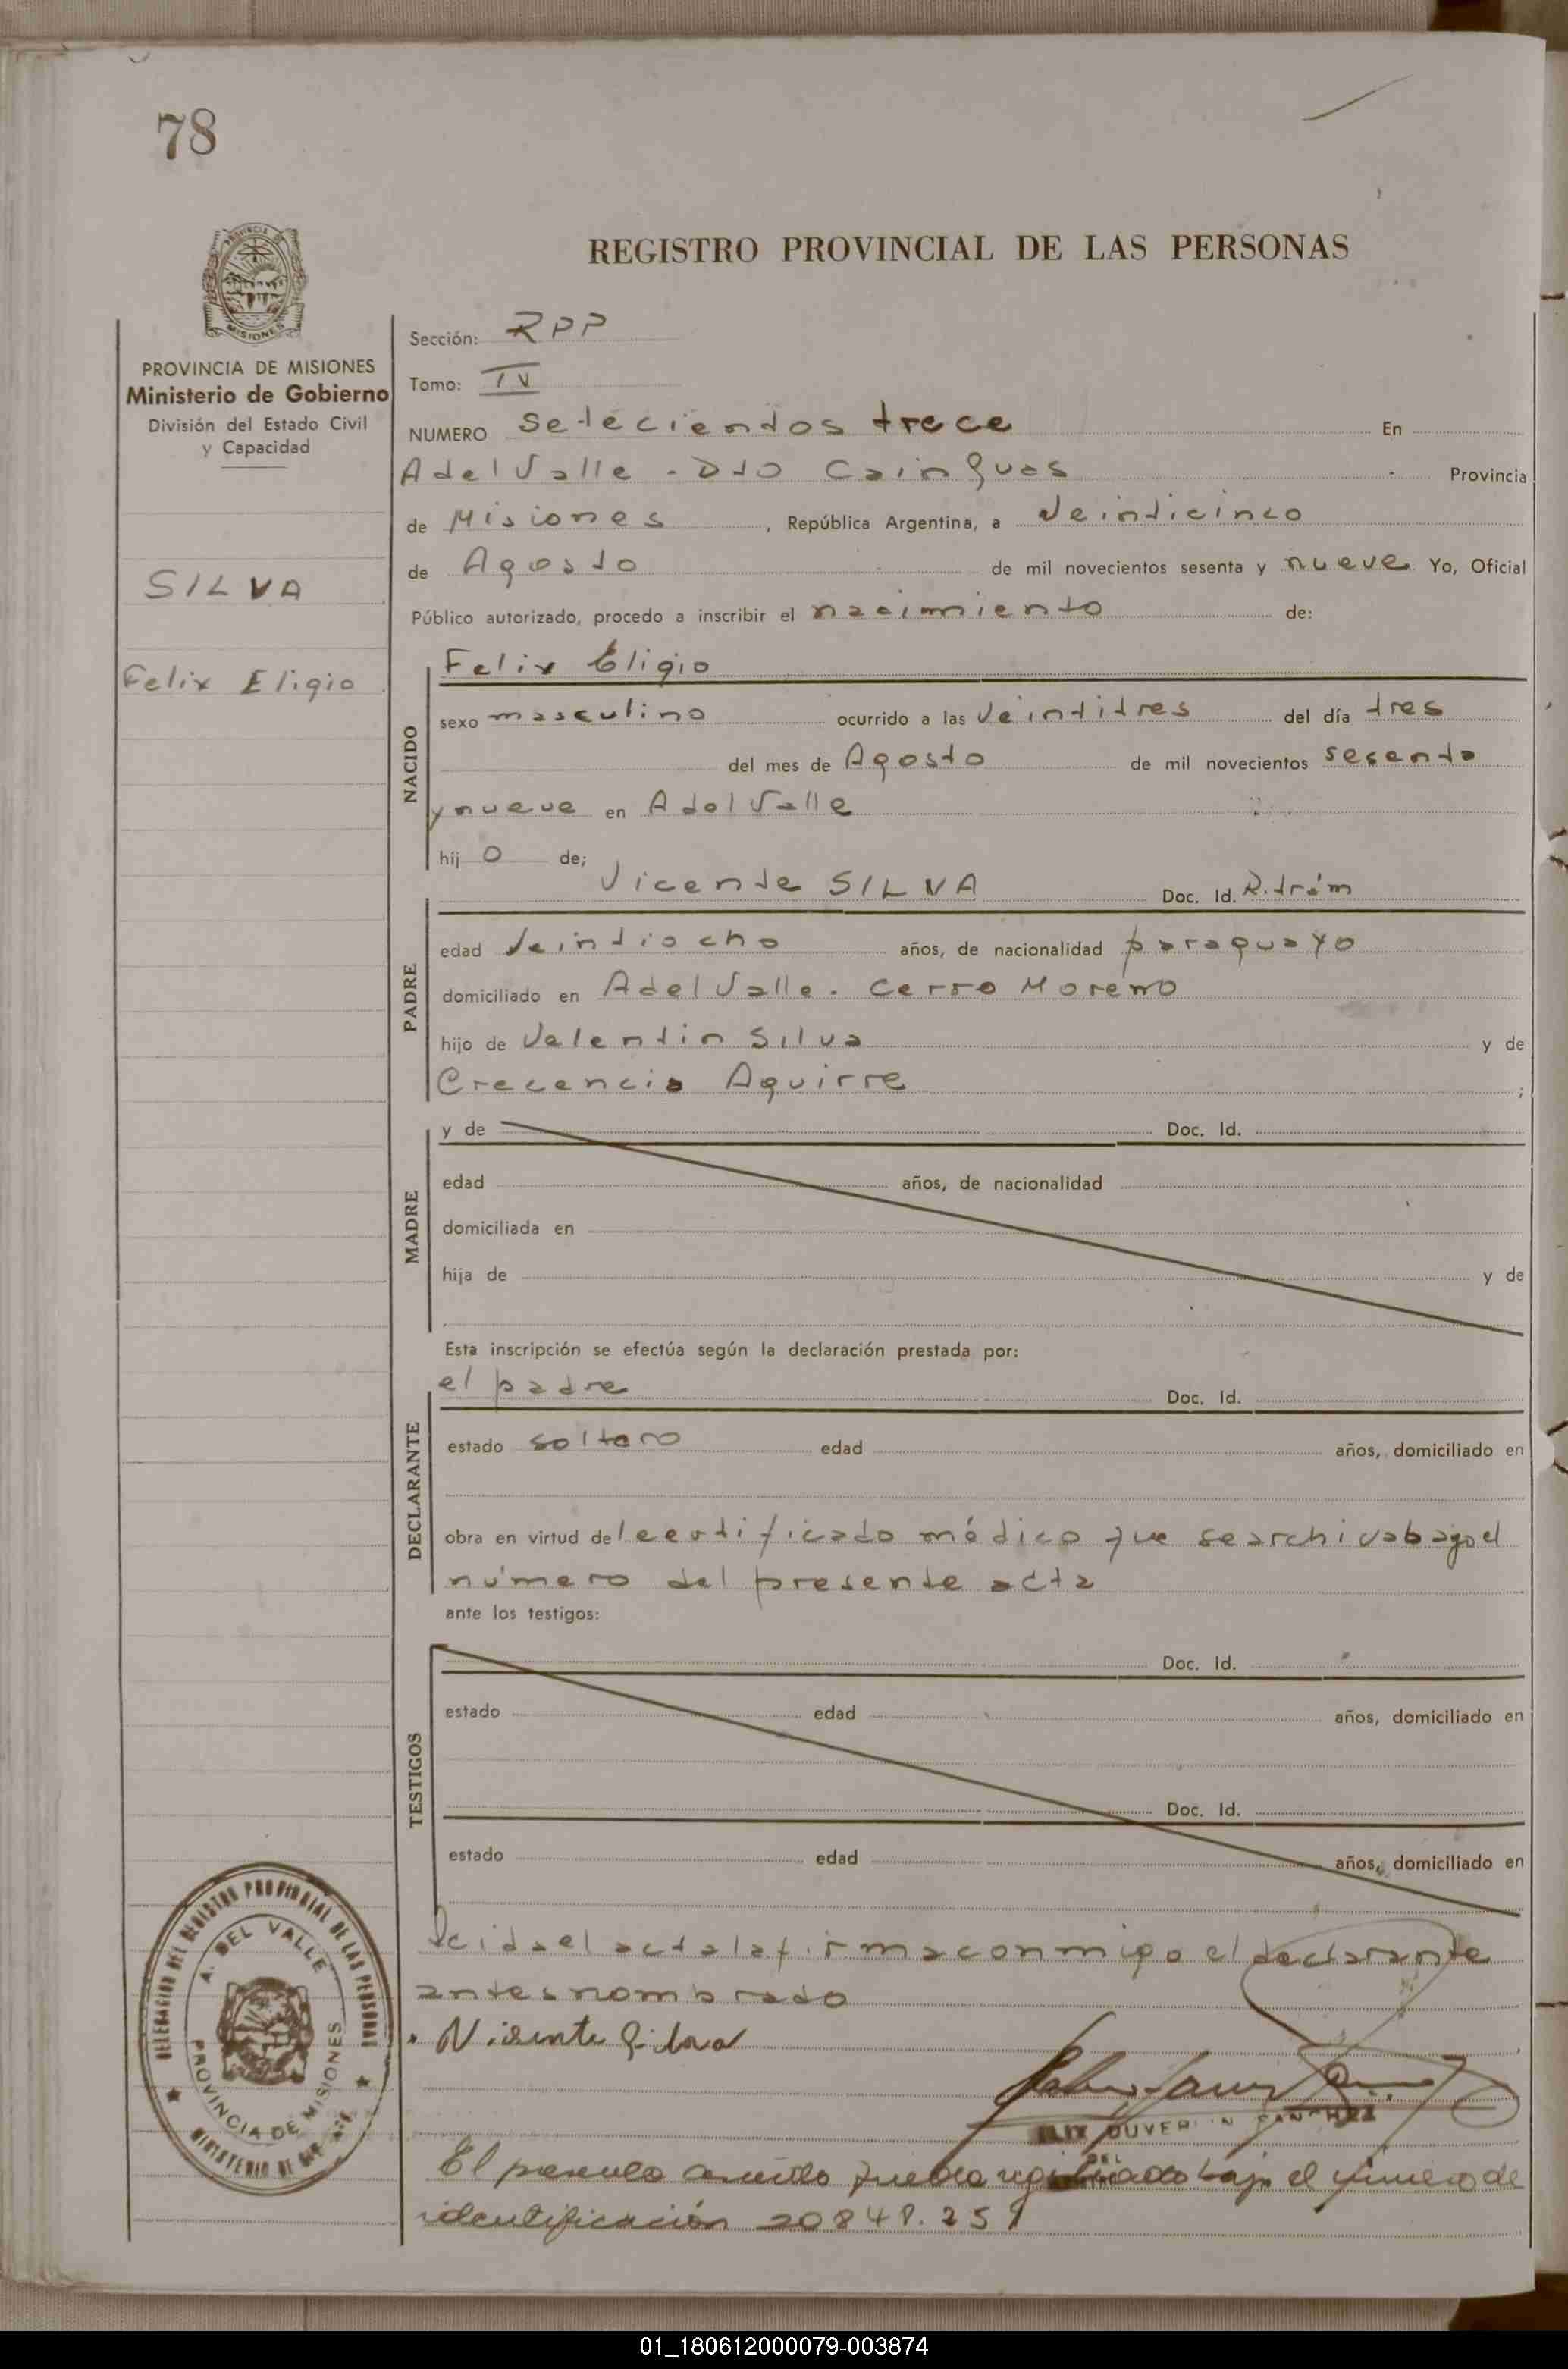 78
REGISTRO PROVINCIAL DE LAS PERSONAS
MISIONES
PROVINCIA DE MISIONES
Ministerio de Gobierno
División del Estado Civil
y Capacidad
SILVA
Felix Eligio
Sección: RPP
Tomo: IV
NUMERO setecientos trece En
A del Valle - Dto Cainguas Provincia
de Misiones, República Argentina, a Veinticinco
de Agosto de mil novecientos sesenta y nueve Yo, Oficial
Público autorizado, procedo a inscribir el nacimiento de:
NACIDO
Felix Eligio
sexo masculino ocurrido a las Veintitres del día tres
del mes de Agosto de mil novecientos sesenta
y nueve en A del Valle
hij o de;
PADRE
Vicente SILVA Doc. Id. R. trám
edad Veintiocho años, de nacionalidad paraguayo
domiciliado en A del Valle. Cerro Moreno
hijo de Valentin Silva y de
Crecencia Aguirre ;
MADRE
y de Doc. Id.
edad años, de nacionalidad
domiciliada en
hija de y de
Esta inscripción se efectúa según la declaración prestada por:
DECLARANTE
el padre Doc. Id.
estado soltero edad años, domiciliado en
obra en virtud del certificado médico que se archiva bajo el
número del presente acta
ante los testigos:
TESTIGOS
Doc. Id.
estado edad años, domiciliado en
Doc. Id.
estado edad años, domiciliado en
Leida el acta la firma conmigo el declarante
antes nombrado
Visente Silva
SANCHEZ
DELEGACION DEL REGISTRO PROVINCIAL DE LAS PERSONAS
A. DEL VALLE
PROVINCIA DE MISIONES
MINISTERIO DE
El presente bajo el número de
identificación
01_180612000079-003874